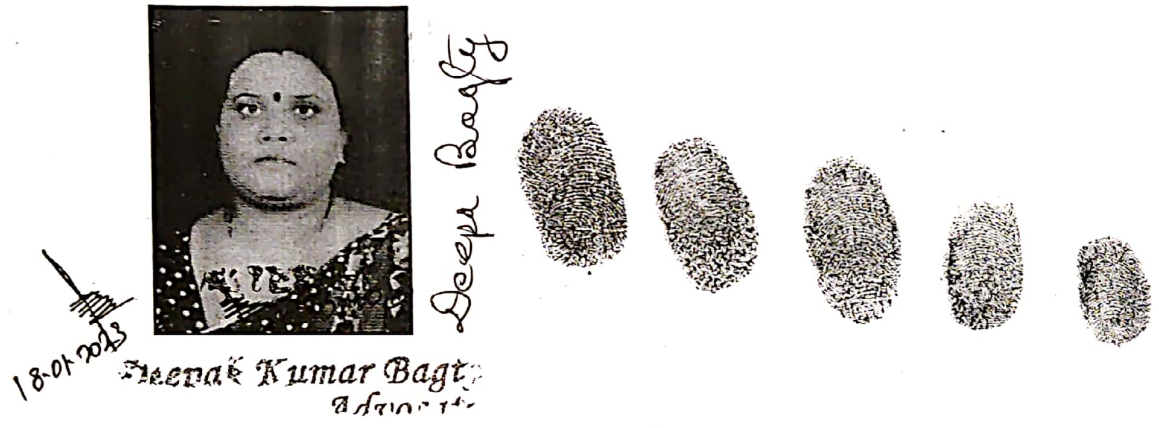 Deepa Bagty
18-01-2023
Deepak Kumar Bagty
Advocate